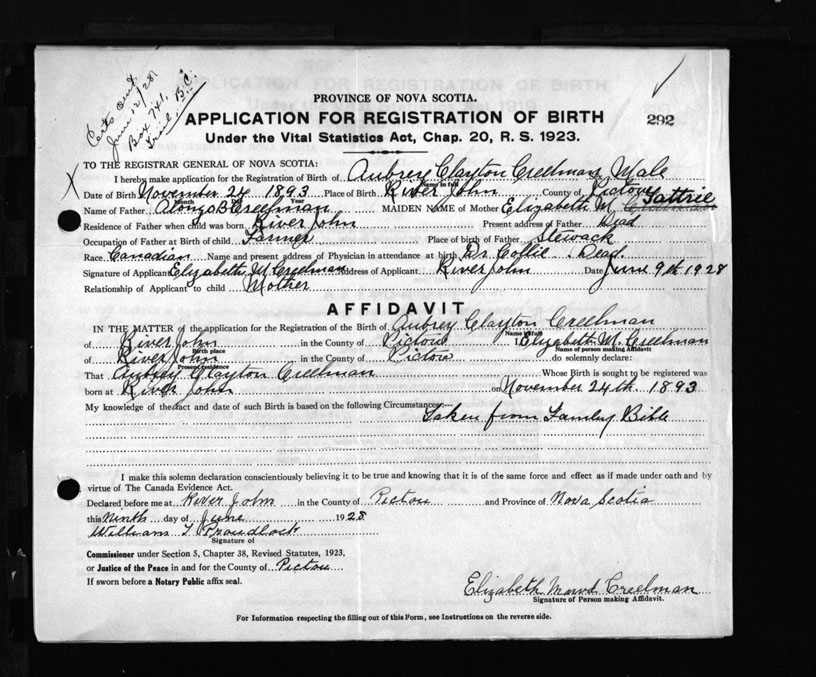 Certs Sent
June 12/28
Box 741,
Trail, B.C.
PROVINCE OF NOVA SCOTIA.
APPLICATION FOR REGISTRATION OF BIRTH
292
Under the Vital Statistics Act, Chap. 20, R. S. 1923.
TO THE REGISTRAR GENERAL OF NOVA SCOTIA:
I hereby make application for the Registration of Birth of Aubrey Clayton Creelman, Male
Name in full
Date of Birth November 24 1893 Place of Birth River John County of Pictou
Month Day Year
Name of Father Alonzo B Creelman MAIDEN NAME of Mother Elizabeth M. Tattrie
Residence of Father when child was born River John Present address of Father Dead
Occupation of Father at Birth of child Farmer Place of birth of Father Stewack
Race. Canadian Name and present address of Physician in attendance at birth Dr Collie Dead.
Signature of Applicant Elizabeth M Creelman Address of Applicant River John Date June 9th 1928
Relationship of Applicant to child Mother
AFFIDAVIT
IN THE MATTER of the application for the Registration of the Birth of Aubrey Clayton Creelman
Name in full
of River John in the County of Pictou I Elizabeth M. Creelman
Birth place Name of person making Affidavit
of River John in the County of Pictou do solemnly declare:
Present residence
That Aubrey Clayton Creelman Whose Birth is sought to be registered was
born at River John on November 24th 1893
My knowledge of the fact and date of such Birth is based on the following Circumstances:
Taken from Family Bible
I make this solemn declaration conscientiously believing it to be true and knowing that it is of the same force and effect as if made under oath and by
virtue of The Canada Evidence Act.
Declared before me at River John in the County of Pictou and Province of Nova Scotia
this Ninth day of June 1928
William T Proudlock
Signature of
Commissioner under Section 5, Chapter 38, Revised Statutes, 1923,
or Justice of the Peace in and for the County of Pictou
If sworn before a Notary Public affix seal.
Elizabeth Maud Creelman
Signature of Person making Affidavit.
For Information respecting the filling out of this Form, see Instructions on the reverse side.